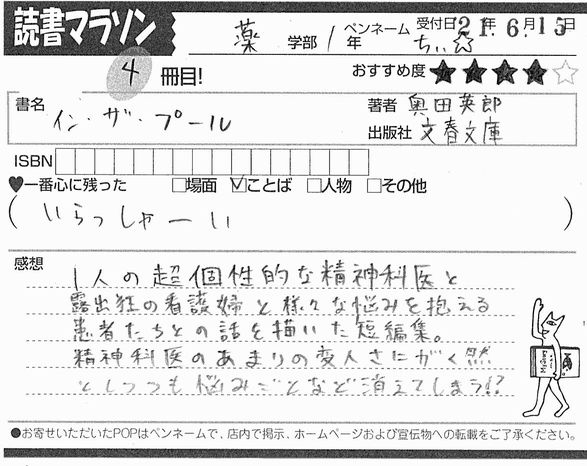 読書マラソン
薬 学部 / 年 ペンネーム ちぃ☆ 受付日 21年 6月15日
4 冊目! おすすめ度 ★★★★☆
書名 イン・ザ・プール
著者 奥田英郎
出版社 文春文庫
ISBN
♥一番心に残った □場面 ☑ことば □人物 □その他
( いらっしゃーい )
感想
1人の超個性的な精神科医と
露出狂の看護婦と様々な悩みを抱える
患者たちとの話を描いた短編集。
精神科医のあまりの変人さにがく然
としつつも悩みごとなど消えてしまう!?
●お寄せいただいたPOPはペンネームで、店内で掲示、ホームページおよび宣伝物への転載をご了承ください。